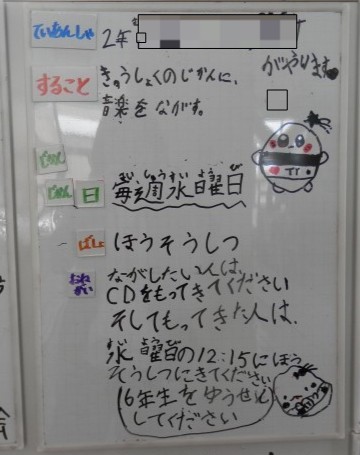 ていあんしゃ
2年
がやります。
すること
きゅうしょくのじかんに、
音楽をながす。
じかん
じかん
日
まいしゅうすいようび
毎週水曜日
ばしょ
ほうそうしつ
おねがい
ながしたい人は、
CDをもってきてください
そしてもってきた人は、
すいようび
水曜日の12:15にほう
そうしつにきてください
6年生をゆうせん
してください